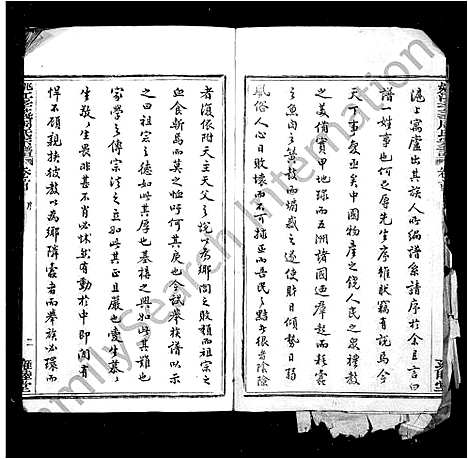 滬上寓廬出其族人所編譜系請序於余且言曰
譜一姓事也何之厚先生序雖狀竊有說焉今
天下事亟矣中國物產之饒人民之眾禮教
之美備實甲地球而五洲諸國迺群起而耗蠹
商之以篝鼓而煽惑之遂使財日傾勢日弱
風俗人心日敗壞而不可亟而吾民之黠者狠者陰險
者復依附天主天父之說為鄉閭之敗類而祖宗之
血食斬焉而莫之恤吁何其戾也今試舉族譜以示
之曰祖宗之德如此其厚也基構之興如此其難也
家學之傳宗法之立如此其正且嚴也愛生慕
生敬人生畏非甚不肖必怵然有動於中即閒有
悍不顧親扶彼教以為鄉隣害者而舉族必環而
卷首
序
二
FamilySearch International